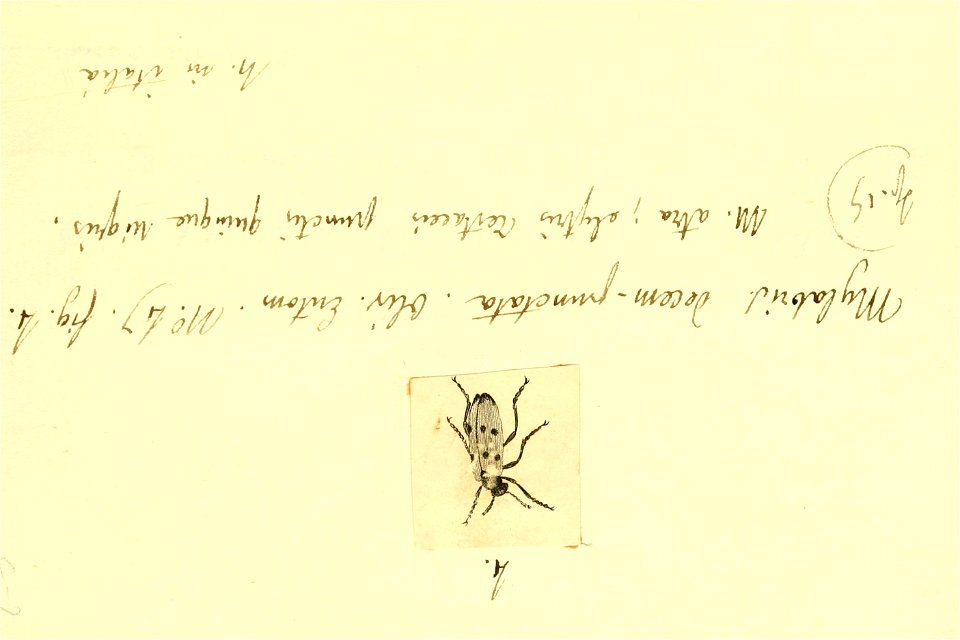 4.
Mylabris decem-punctata. Oliv. Entom. N.° 47. fig. 4.
M. atra; elytris testaceis punctis quinque nigris.
h. in italiâ